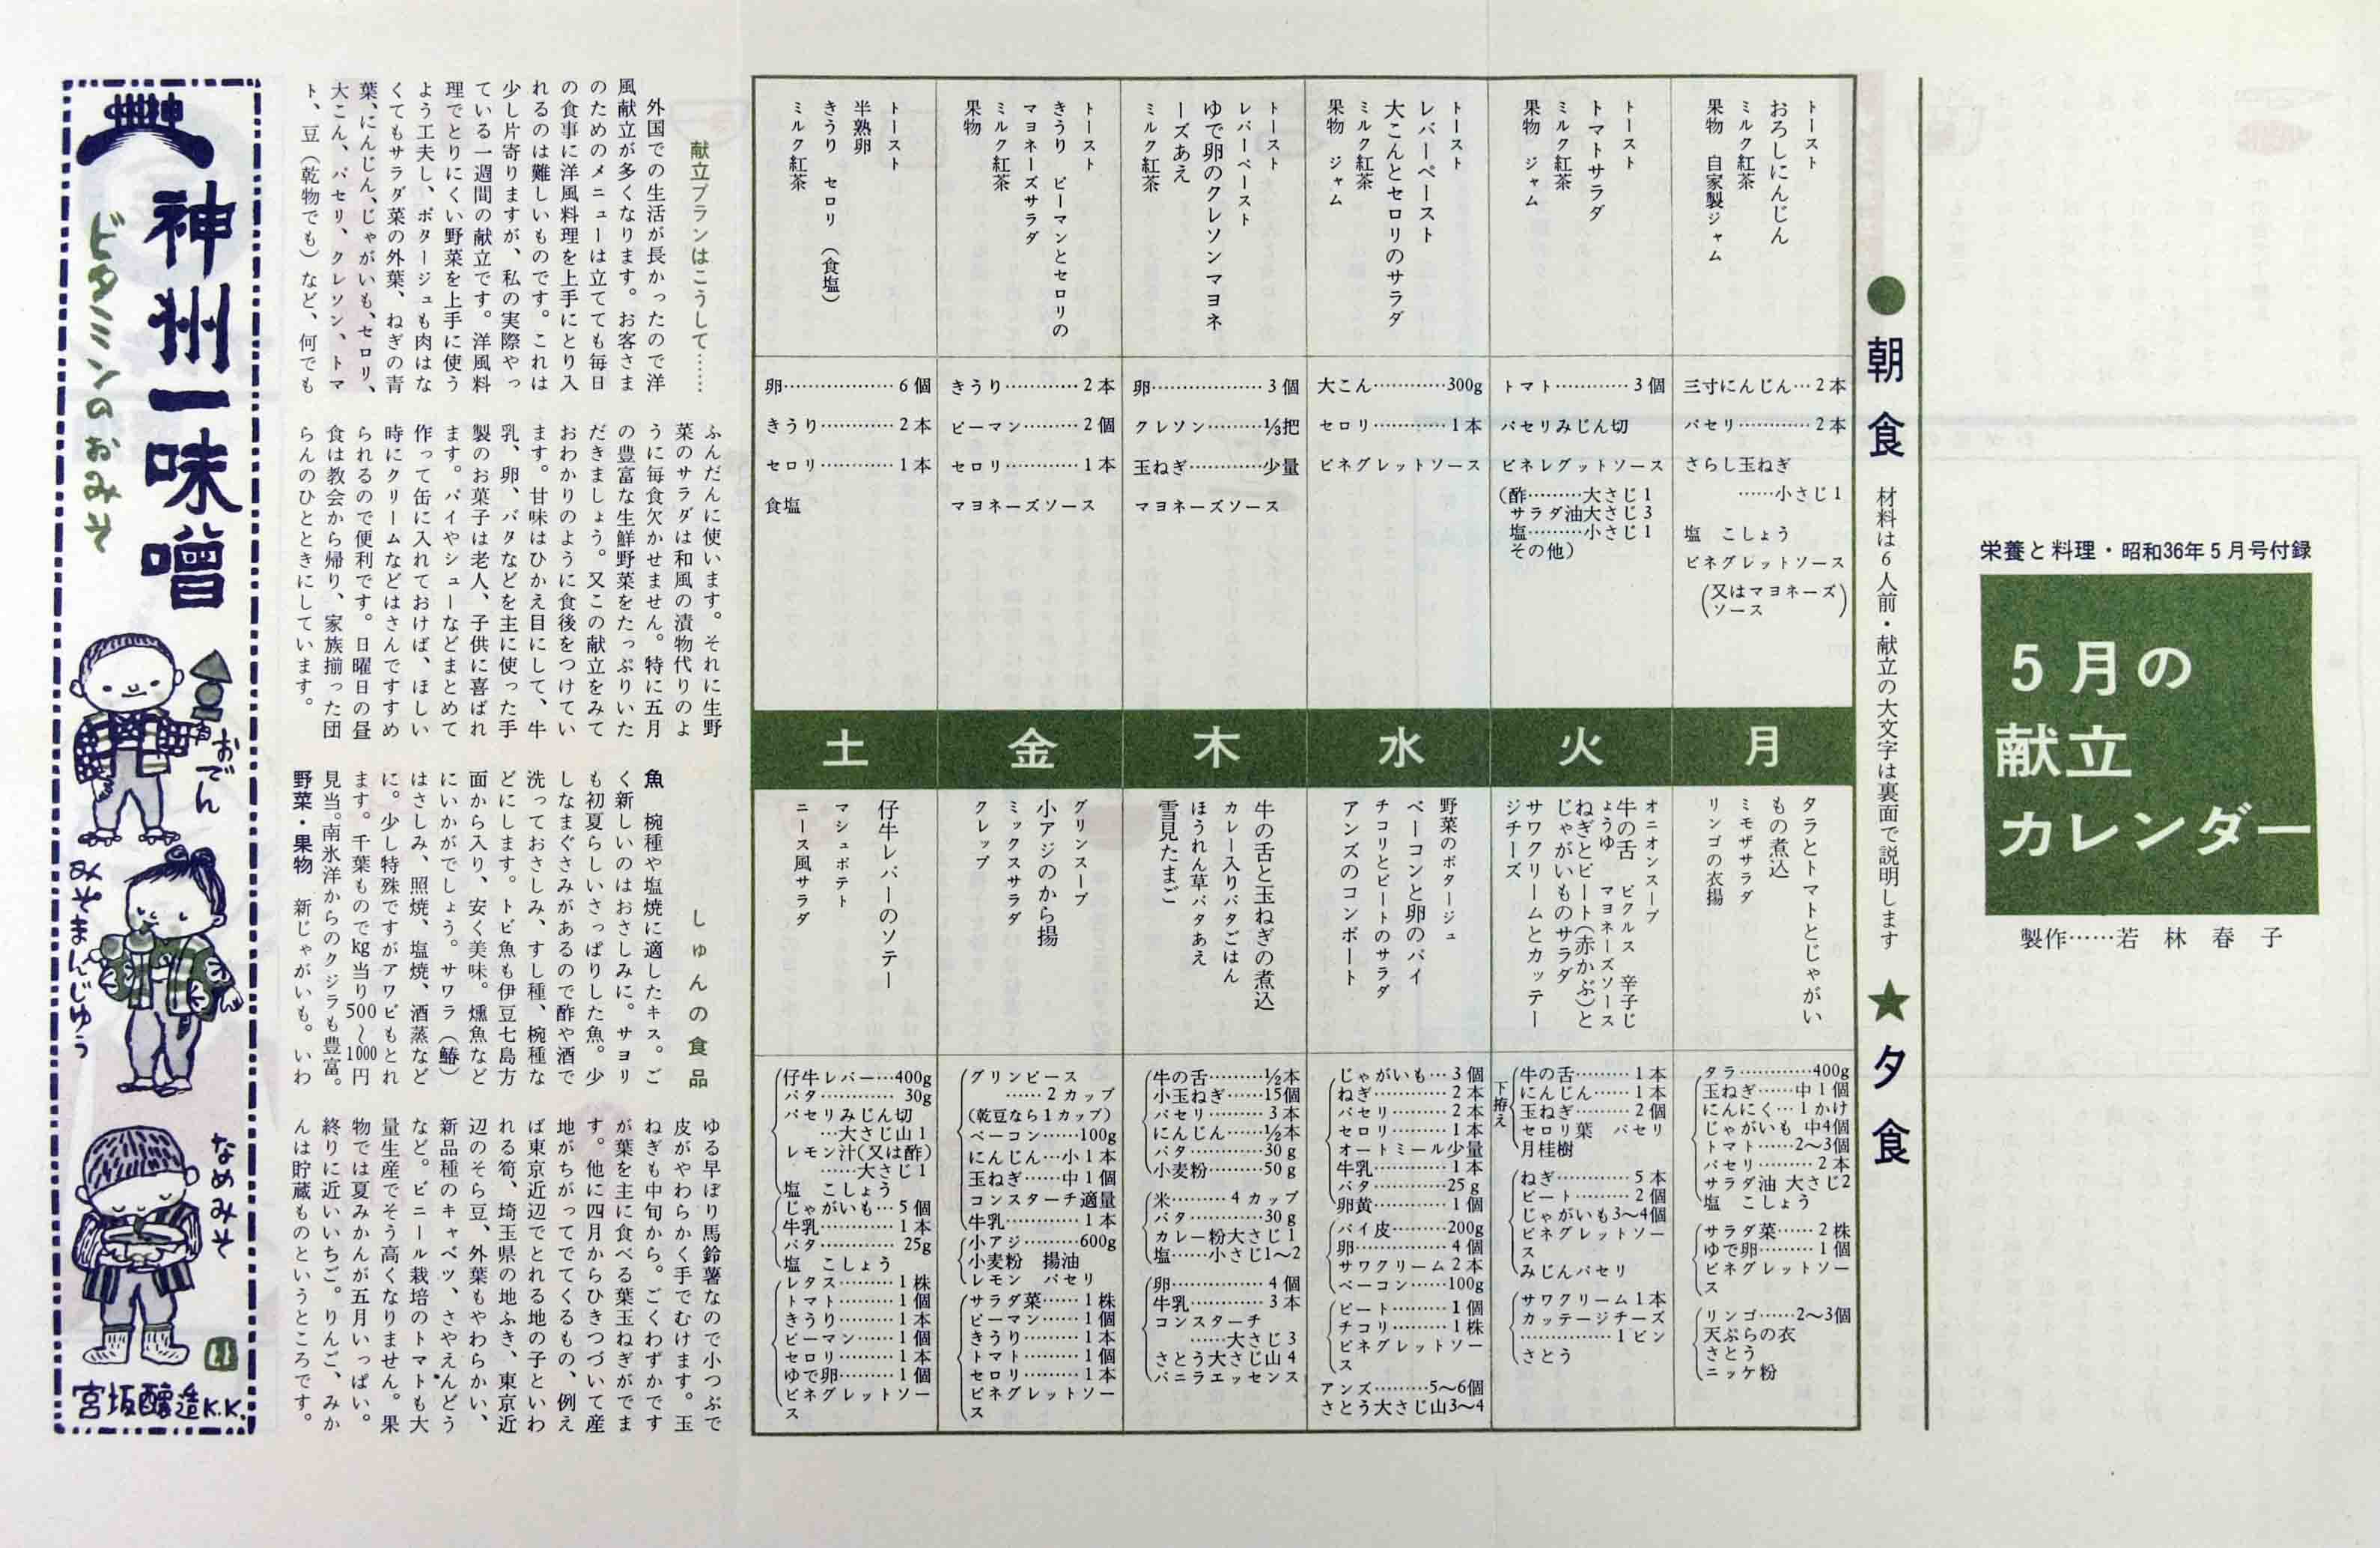 栄養と料理・昭和36年5月号付録
5月の
献立
カレンダー
製作……若林春子
●朝食 材料は6人前・献立の大文字は裏面で説明します ★夕食
月
トースト
おろしにんじん
ミルク紅茶
果物 自家製ジャム
三寸にんじん…2本
パセリ…………2本
さらし玉ねぎ
……小さじ1
塩 こしょう
ビネグレットソース
(又はマヨネーズ
ソース)
タラとトマトとじゃがい
もの煮込
ミモザサラダ
リンゴの衣揚
タラ…………400g
玉ねぎ……中1個
にんにく…1かけ
じゃがいも 中4個
トマト……2〜3個
パセリ………2本
サラダ油 大さじ2
塩 こしょう
サラダ菜……2株
ゆで卵………1個
ビネグレットソー
ス
リンゴ……2〜3個
天ぷらの衣
さとう
ニッケ粉
火
トースト
トマトサラダ
ミルク紅茶
果物 ジャム
トマト…………3個
パセリみじん切
ビネレグットソース
(酢………大さじ1
サラダ油大さじ3
塩………小さじ1
その他)
オニオンスープ
牛の舌 ピクルス 辛子じ
ょうゆ マヨネーズソース
ねぎとビート(赤かぶ)と
じゃがいものサラダ
サワクリームとカッテー
ジチーズ
下拵え
牛の舌………1本
にんじん……1本
玉ねぎ………2個
セロリ葉 パセリ
月桂樹
ねぎ…………5本
ビート………2個
じゃがいも3〜4個
ビネグレットソー
ス
みじんパセリ
サワクリーム1本
カッテージチーズ
……………1ビン
さとう
水
トースト
レバーペースト
大こんとセロリのサラダ
ミルク紅茶
果物 ジャム
大こん…………300g
セロリ…………1本
ビネグレットソース
野菜のポタージュ
ベーコンと卵のパイ
チコリとビートのサラダ
アンズのコンポート
じゃがいも…3個
ねぎ…………2本
パセリ………2本
セロリ………1本
オートミール少量
牛乳…………1本
バタ…………25g
卵黄…………1個
パイ皮………200g
卵……………4個
サワクリーム2本
ベーコン……100g
ビート………1個
チコリ………1株
ビネグレットソー
ス
アンズ………5〜6個
さとう大さじ山3〜4
木
トースト
レバーペースト
ゆで卵のクレソンマヨネ
ーズあえ
ミルク紅茶
卵………………3個
クレソン………⅓把
玉ねぎ…………少量
マヨネーズソース
牛の舌と玉ねぎの煮込
カレー入りバタごはん
ほうれん草バタあえ
雪見たまご
牛の舌………½本
小玉ねぎ……15個
パセリ………3本
にんじん……½本
バタ…………30g
小麦粉………50g
米………4カップ
バタ…………30g
カレー粉大さじ1
塩……小さじ1〜2
卵……………4個
牛乳…………3本
コンスターチ
……大さじ3
さとう大さじ山4
バニラエッセンス
金
トースト
きうり ピーマンとセロリの
マヨネーズサラダ
ミルク紅茶
果物
きうり…………2本
ピーマン………2個
セロリ…………1本
マヨネーズソース
グリンスープ
小アジのから揚
ミックスサラダ
クレップ
グリンピース
……2カップ
(乾豆なら1カップ)
ベーコン……100g
にんじん…小1本
玉ねぎ……中1個
コンスターチ適量
牛乳…………1本
小アジ………600g
小麦粉 揚油
レモン パセリ
サラダ菜……1株
ピーマン……1個
きうり………1本
トマト………1個
セロリ………1本
ビネグレットソー
ス
土
トースト
半熟卵
きうり セロリ (食塩)
ミルク紅茶
卵………………6個
きうり…………2本
セロリ…………1本
食塩
仔牛レバーのソテー
マシュポテト
ニース風サラダ
仔牛レバー…400g
バタ…………30g
パセリみじん切
…大さじ山1
レモン汁(又は酢)
……大さじ1
塩 こしょう
じゃがいも…5個
牛乳…………1本
バタ…………25g
塩 こしょう
レタス………1株
トマト………1個
きうり………1本
ピーマン……1個
セロリ………1本
ゆで卵………1個
ビネグレットソー
ス
献立プランはこうして……
外国での生活が長かったので洋
風献立が多くなります。お客さま
のためのメニューは立てても毎日
の食事に洋風料理を上手にとり入
れるのは難しいものです。これは
少し片寄りますが、私の実際やっ
ている一週間の献立です。洋風料
理でとりにくい野菜を上手に使う
よう工夫し、ポタージュも肉はな
くてもサラダ菜の外葉、ねぎの青
葉、にんじん、じゃがいも、セロリ、
大こん、パセリ、クレソン、トマ
ト、豆(乾物でも)など、何でも
ふんだんに使います。それに生野
菜のサラダは和風の漬物代りのよ
うに毎食欠かせません。特に五月
の豊富な生鮮野菜をたっぷりいた
だきましょう。又この献立をみて
おわかりのように食後をつけてい
ます。甘味はひかえ目にして、牛
乳、卵、バタなどを主に使った手
製のお菓子は老人、子供に喜ばれ
ます。パイやシューなどまとめて
作って缶に入れておけば、ほしい
時にクリームなどはさんですすめ
られるので便利です。日曜日の昼
食は教会から帰り、家族揃った団
らんのひとときにしています。
しゅんの食品
魚 椀種や塩焼に適したキス。ご
く新しいのはおさしみに。サヨリ
も初夏らしいさっぱりした魚。少
しなまぐさみがあるので酢や酒で
洗っておさしみ、すし種、椀種な
どにします。トビ魚も伊豆七島方
面から入り、安く美味。燻魚など
にいかがでしょう。サワラ(鰆)
はさしみ、照焼、塩焼、酒蒸など
に。少し特殊ですがアワビもとれ
ます。千葉もので㎏当り500〜1000円
見当。南氷洋からのクジラも豊富。
野菜・果物 新じゃがいも。いわ
ゆる早ぼり馬鈴薯なので小つぶで
皮がやわらかく手でむけます。玉
ねぎも中旬から。ごくわずかです
が葉を主に食べる葉玉ねぎがでま
す。他に四月からひきつづいて産
地がちがってでてくるもの、例え
ば東京近辺でとれる地の子といわ
れる筍、埼玉県の地ふき、東京近
辺のそら豆、外葉もやわらかい、
新品種のキャベツ、さやえんどう
など。ビニール栽培のトマトも大
量生産でそう高くなりません。果
物では夏みかんが五月いっぱい。
終りに近いいちご。りんご、みか
んは貯蔵ものというところです。
神州一味噌
ビタミンのおみそ
おでん
みそまんじゅう
なめみそ
宮坂醸造K.K.